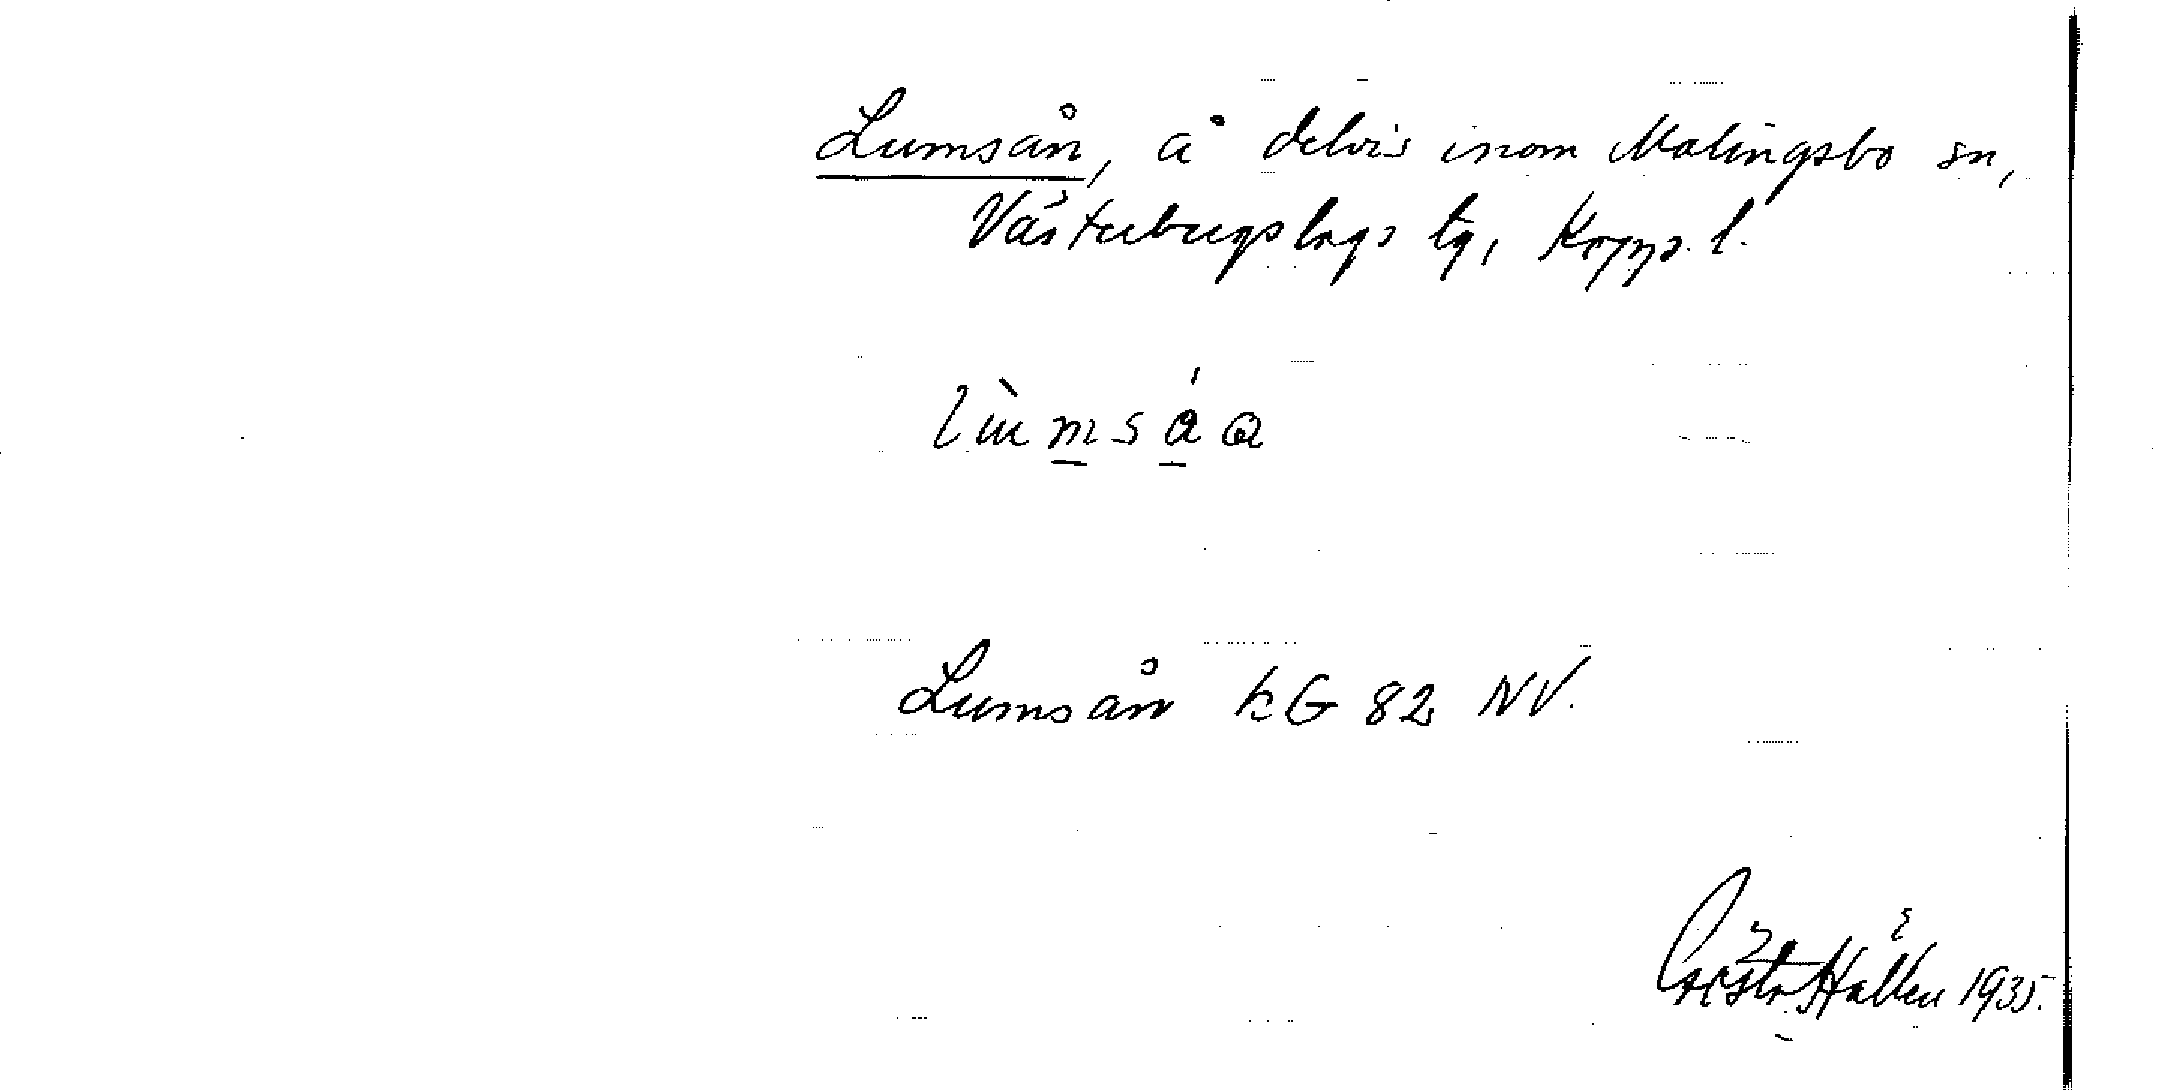 Lumsån, å delvis inom Malingsbo sn,
Västerbergslags tg, Kopps. l.
lùmsáa
Lumsån kG 82 NV.
Gösta Hallén 1935.